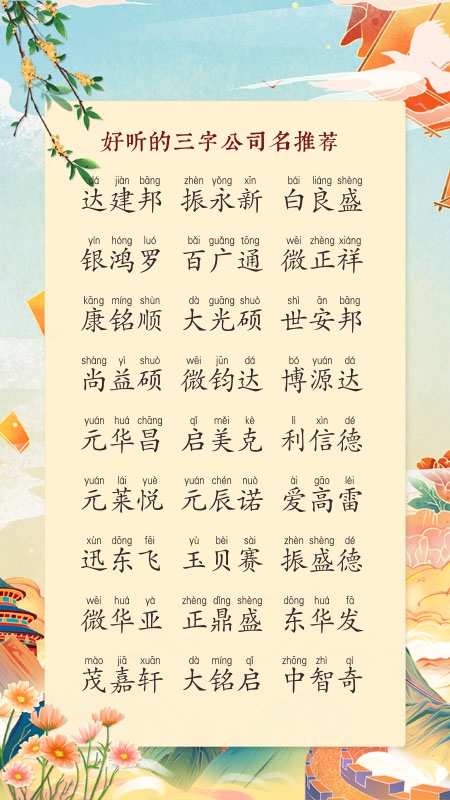 好听的三字公司名推荐
dá jiàn bāng zhèn yǒng xīn bái liáng shèng
达建邦 振永新 白良盛
yín hóng luó bǎi guǎng tōng wēi zhèng xiáng
银鸿罗 百广通 微正祥
kāng míng shùn dà guāng shuò shì ān bāng
康铭顺 大光硕 世安邦
shàng yì shuò wēi jūn dá bó yuán dá
尚益硕 微钧达 博源达
yuán huá chāng qǐ měi kè lì xìn dé
元华昌 启美克 利信德
yuán lái yuè yuán chén nuò ài gāo léi
元莱悦 元辰诺 爱高雷
xùn dōng fēi yù bèi sài zhèn shèng dé
迅东飞 玉贝赛 振盛德
wēi huá yà zhèng dǐng shèng dōng huá fā
微华亚 正鼎盛 东华发
mào jiā xuān dà míng qǐ zhōng zhì qí
茂嘉轩 大铭启 中智奇